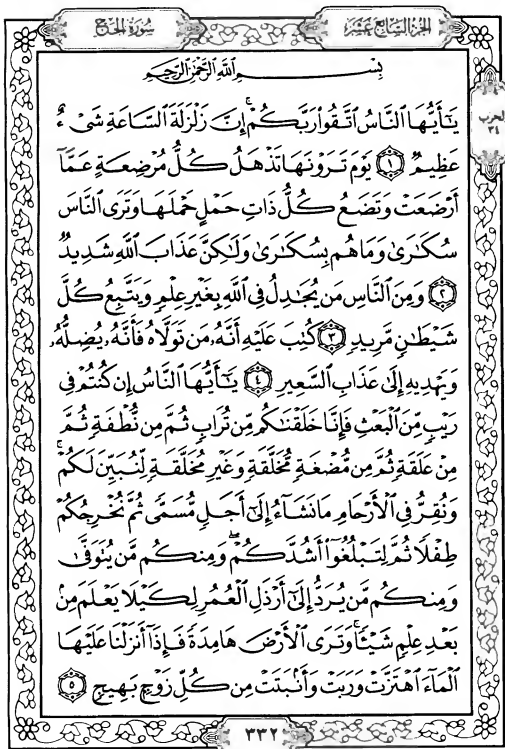 الجزء السابع عشر
سورة الحج
بِسْمِ اللَّهِ الرَّحْمَٰنِ الرَّحِيمِ
الحزب ٣٤
يَٰٓأَيُّهَا النَّاسُ اتَّقُوا رَبَّكُمْ ۚ إِنَّ زَلْزَلَةَ السَّاعَةِ شَىْءٌ
عَظِيمٌ ١ يَوْمَ تَرَوْنَهَا تَذْهَلُ كُلُّ مُرْضِعَةٍ عَمَّآ
أَرْضَعَتْ وَتَضَعُ كُلُّ ذَاتِ حَمْلٍ حَمْلَهَا وَتَرَى النَّاسَ
سُكَٰرَىٰ وَمَا هُم بِسُكَٰرَىٰ وَلَٰكِنَّ عَذَابَ اللَّهِ شَدِيدٌ
٢ وَمِنَ النَّاسِ مَن يُجَٰدِلُ فِى اللَّهِ بِغَيْرِ عِلْمٍ وَيَتَّبِعُ كُلَّ
شَيْطَٰنٍ مَّرِيدٍ ٣ كُتِبَ عَلَيْهِ أَنَّهُۥ مَن تَوَلَّاهُ فَأَنَّهُۥ يُضِلُّهُۥ
وَيَهْدِيهِ إِلَىٰ عَذَابِ السَّعِيرِ ٤ يَٰٓأَيُّهَا النَّاسُ إِن كُنتُمْ فِى
رَيْبٍ مِّنَ الْبَعْثِ فَإِنَّا خَلَقْنَٰكُم مِّن تُرَابٍ ثُمَّ مِن نُّطْفَةٍ ثُمَّ
مِنْ عَلَقَةٍ ثُمَّ مِن مُّضْغَةٍ مُّخَلَّقَةٍ وَغَيْرِ مُخَلَّقَةٍ لِّنُبَيِّنَ لَكُمْ ۚ
وَنُقِرُّ فِى الْأَرْحَامِ مَا نَشَآءُ إِلَىٰٓ أَجَلٍ مُّسَمًّى ثُمَّ نُخْرِجُكُمْ
طِفْلًا ثُمَّ لِتَبْلُغُوٓا أَشُدَّكُمْ ۖ وَمِنكُم مَّن يُتَوَفَّىٰ
وَمِنكُم مَّن يُرَدُّ إِلَىٰٓ أَرْذَلِ الْعُمُرِ لِكَيْلَا يَعْلَمَ مِنۢ
بَعْدِ عِلْمٍ شَيْـًٔا ۚ وَتَرَى الْأَرْضَ هَامِدَةً فَإِذَآ أَنزَلْنَا عَلَيْهَا
الْمَآءَ اهْتَزَّتْ وَرَبَتْ وَأَنۢبَتَتْ مِن كُلِّ زَوْجٍۭ بَهِيجٍ ٥
٣٣٢